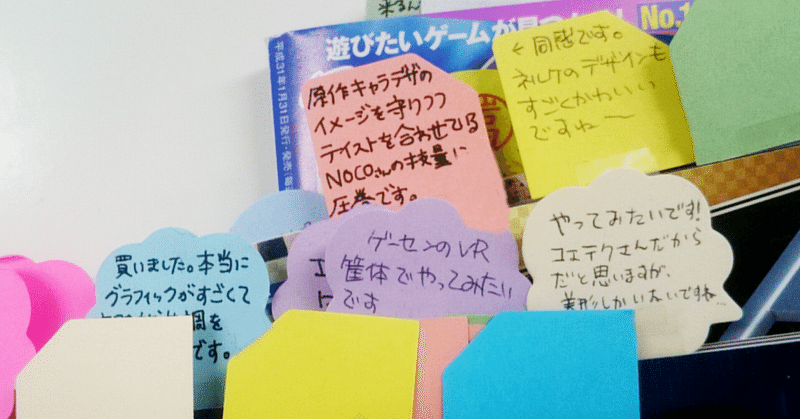 来るん
遊びたいゲームが見つかる! No.1
平成31年1月31日発行・発売
原作キャラデザの
イメージを守りつつ
テイストを合わせている
NOCOさんの技量に
圧巻です。
←同感です。
ネルケのデザインも
すごくかわいい
ですね〜
買いました。本当に
グラフィックがすごくて
です。
ゲーセンのVR
筐体でやってみたい
です
やってみたいです!
コエテクさんだから
だと思いますが、
美形しかいないですね